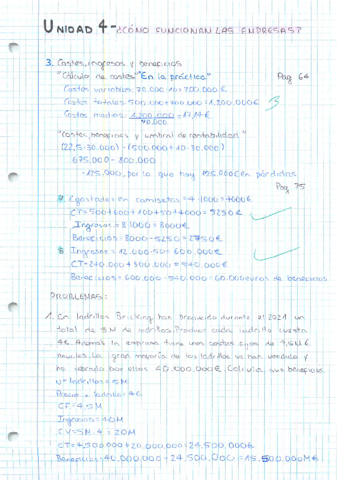 UNIDAD 4-¿CÓMO FUNCIONAN LAS EMPRESAS?
3. Costes, ingresos y beneficios
"Cálculo de costes" "En la práctica" Pag 64
Costes variables: 70.000·10=700.000€
Costes totales: 500.000+700.000=1.200.000€
Costes medios: 1.200.000/70.000=17,14€
"Costes, beneficios y umbral de rentabilidad"
(22,5·30.000)-(500.000+10·30.000)
675.000-800.000
-125.000, por lo que hay 125.000€ en pérdidas
Pag 75
7. en camisetas=4·1000=4000€
CT=500+600+100+50+4000=5250€
Ingresos=8·1000=8000€
Beneficios=8000-5250=2750€
8 Ingresos=12.000·50=600.000€
CT=240.000+300.000=540.000€
Beneficios=600.000-540.000=60.000euros de beneficios
PROBLEMAS:
1. En ladrillos han producido durante el 2021 un
total de 5M de ladrillos. Producir cada ladrillo cuesta
4€. Además la empresa tiene unos costes fijos de 4,5M€
anuales. La gran mayoría de los ladrillos se han vendido y
ha por ellos 40.000.000€. Calcula sus beneficios.
Nº ladrillos=5M
ladrillo=4€
CF=4,5M
Ingresos=40M
CV=5M·4=20M
CT=4.500.000+20.000.000=24.500.000€
Beneficios=40.000.000-24.500.000=15.500.000M€